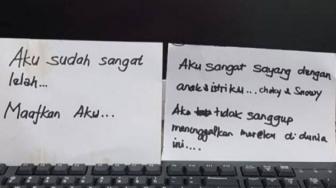 Aku sudah sangat
lelah...
Maafkan Aku...
Aku sangat sayang dengan
anak & istriku... choky & Snowy
Aku tidak sanggup
meninggalkan mereka di dunia
ini....